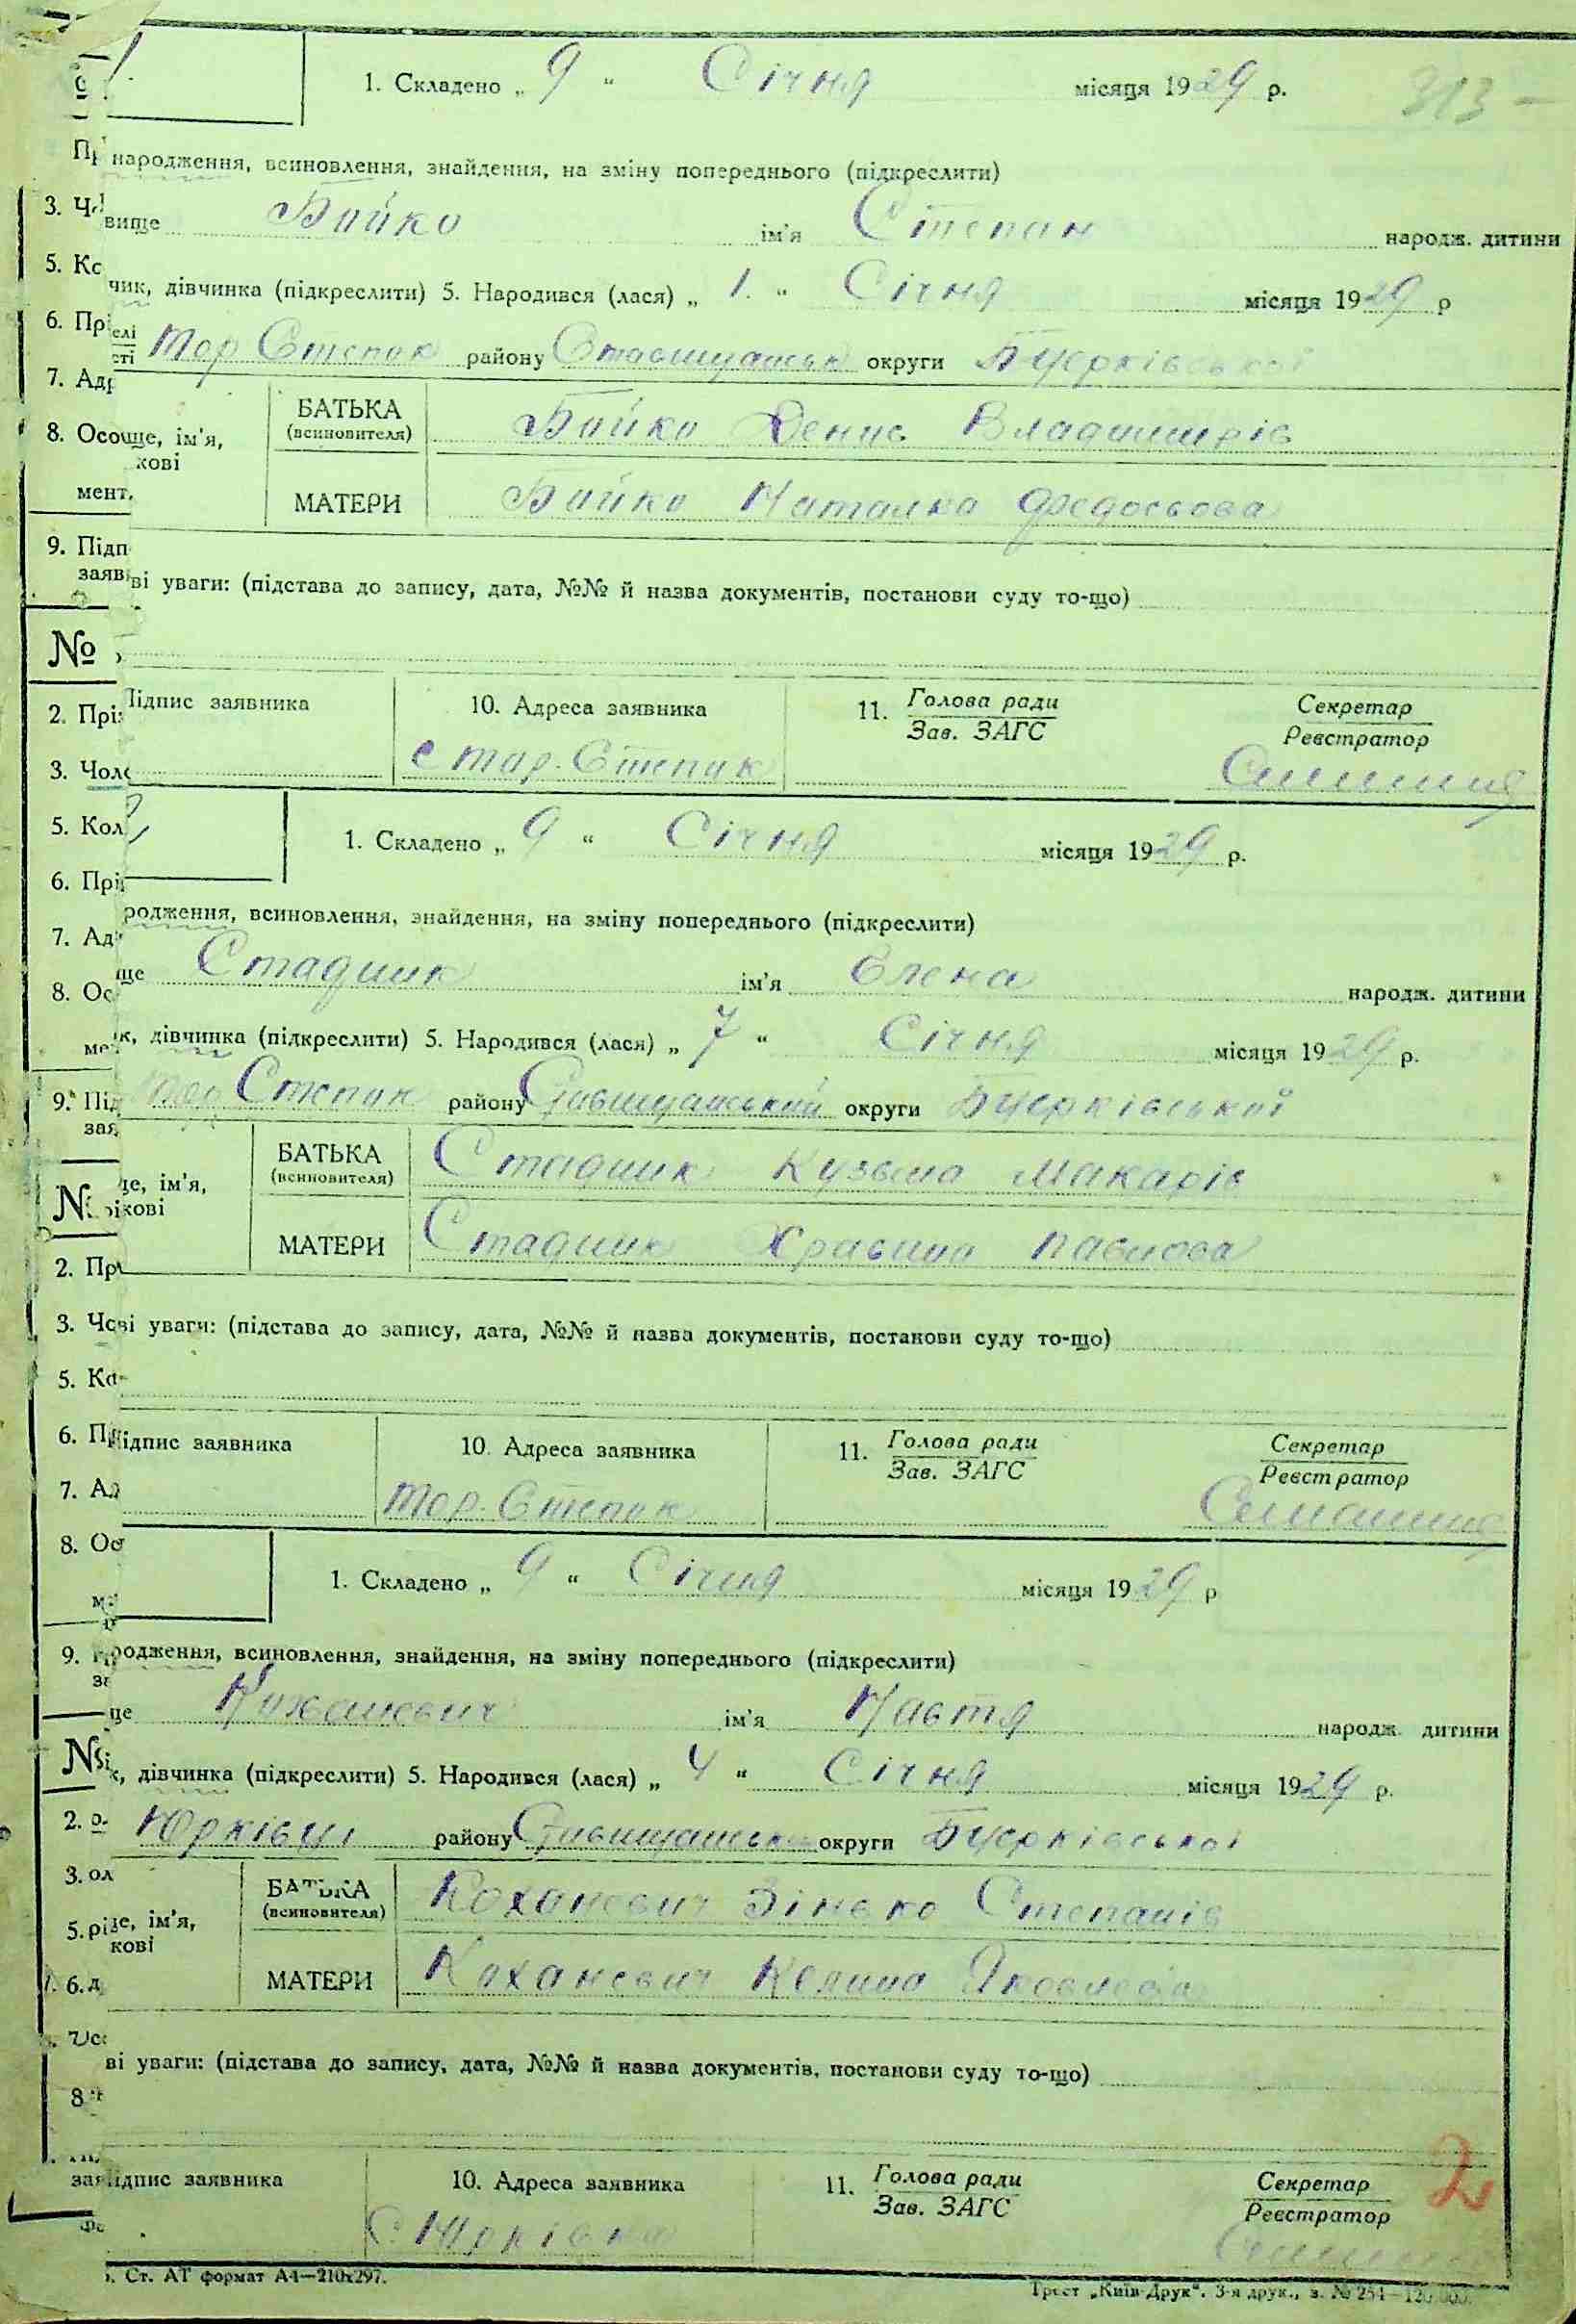 1. Складено „ 9 “ Січня місяця 1929 р. 313 —
народження, всиновлення, знайдення, на зміну попереднього (підкреслити)
вище Бойко ім'я Степан народж. дитини
чик, дівчинка (підкреслити) 5. Народився (лася) „ 1. “ Січня місяця 1929 р
елі
сті Тар Степок району Ставищанськ округи БЦерківської
ще, ім'я,
кові
БАТЬКА
(всиновителя)
Бойко Денис Владимирів
МАТЕРИ Бойко Наталка Федосьова
ві уваги: (підстава до запису, дата, №№ й назва документів, постанови суду то-що)
Підпис заявника 10. Адреса заявника 11. Голова ради
Зав. ЗАГС
Секретар
Реєстратор
с Тар. Степок
1. Складено „ 9 “ Січня місяця 1929 р.
родження, всиновлення, знайдення, на зміну попереднього (підкреслити)
ще Стадник ім'я Єлена народж. дитини
к, дівчинка (підкреслити) 5. Народився (лася) „ 7 “ Січня місяця 1929 р.
Тар Степок району Ставищанський округи БЦерківської
це, ім'я,
ікові
БАТЬКА
(всиновителя)
Стадник Кузьма Макарів
МАТЕРИ Стадник Павлова
ві уваги: (підстава до запису, дата, №№ й назва документів, постанови суду то-що)
ідпис заявника 10. Адреса заявника 11. Голова ради
Зав. ЗАГС
Секретар
Реєстратор
Тар. Степок
1. Складено „ 9 “ Січня місяця 1929 р
родження, всиновлення, знайдення, на зміну попереднього (підкреслити)
це Коханевич ім'я Настя народж. дитини
к, дівчинка (підкреслити) 5. Народився (лася) „ 4 “ Січня місяця 1929 р.
Юрківці району Ставищанська округи БЦерківської
це, ім'я,
кові
БАТЬКА
(всиновителя)
Коханевич Зінько Степанів
МАТЕРИ Коханевич Келина Яковлева
ві уваги: (підстава до запису, дата, №№ й назва документів, постанови суду то-що)
ідпис заявника 10. Адреса заявника 11. Голова ради
Зав. ЗАГС
Секретар
Реєстратор
2
С. Юрківка
Ст. АТ формат А4—210х297.
Трест „Київ-Друк“. 3-я друк., з. № 254—120.000.